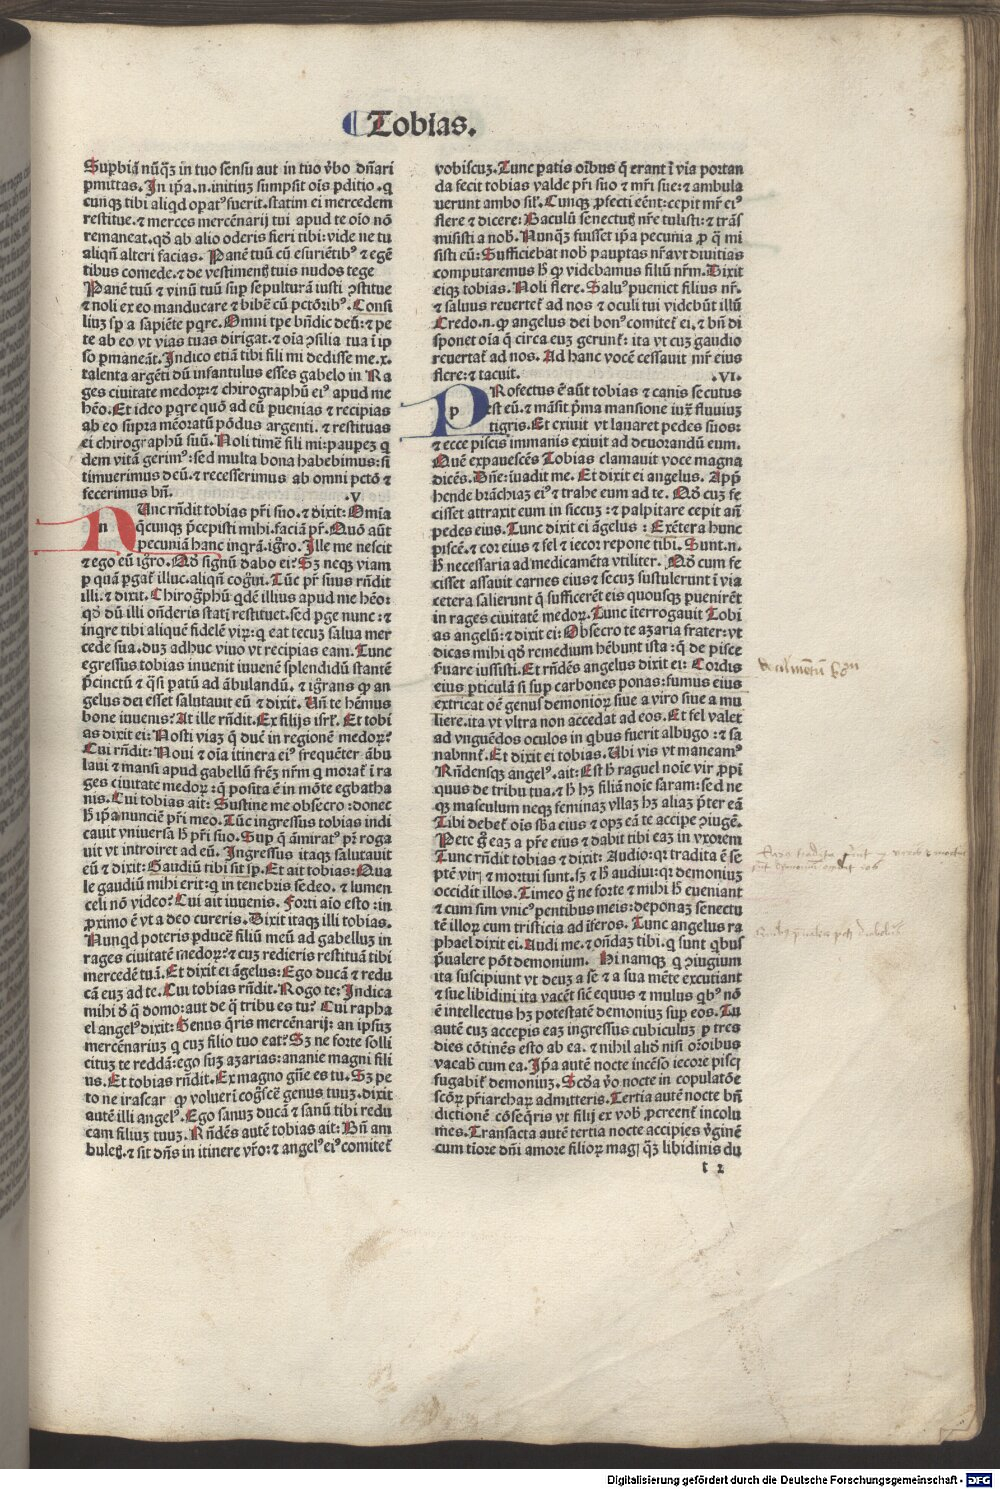 Tobias.
Supbiā nūq̄ȝ in tuo sensu aut in tuo v̓bo dn̄ari
pmittas. In ip̄a .n. initiuȝ sumpsit oīs pditio. q
cunqȝ tibi aliqd opatꝰ fuerit. statim ei mercedem
restitue. ⁊ merces mercēnarij tui apud te oīo nō
remaneat. qd̓ ab alio oderis fieri tibi: vide ne tu
aliqn̄ alteri facias. Panē tuū cū esuriētibꝰ ⁊ egē
tibus comede. ⁊ de vestimentꝭ tuis nudos tege
Panē tuū ⁊ vinū tuū sup sepulturā iusti ꝯstitue
⁊ noli ex eo manducare ⁊ bibē cū pctōribꝰ. Consi
liuȝ sp a sapiēte pqre. Omni tpe bn̄dic deū: ⁊ pe
te ab eo vt vias tuas dirigat. ⁊ oīa ꝯsilia tua ī ip
so pmaneāt. Indico etiā tibi fili mi dedisse me .x.
talenta argēti dū infantulus esses gabelo in Ra
ges ciuitate medoꝝ: ⁊ chirographū eiꝰ apud me
hēo. Et ideo pqre quō ad eū puenias ⁊ recipias
ab eo supra mēoratū pōdus argenti. ⁊ restituas
ei chirographū suū. Noli timē fili mi: paupeȝ q
dem vitā gerimꝰ: sed multa bona habebimus: si
timuerimus deū. ⁊ recesserimus ab omni pctō ⁊
fecerimus bn̄. .V
n
NUnc rn̄dit tobias pr̄i suo. ⁊ dixit: Omīa
q̄cunqȝ p̄cepisti mihi faciā pr̄. Quō aūt
pecuniā hanc inqrā. igr̄o. Ille me nescit
⁊ ego eū igr̄o. Qd̓ signū dabo ei? Sȝ neqȝ viam
p quā pgat̄ illuc. aliqn̄ cogn̄ui. Tūc pr̄ suus rn̄dit
illi. ⁊ dixit. Chirog̓phū qdē illius apud me hēo:
qd̓ dū illi on̄deris stati restituet. sed pge nunc: ⁊
inqre tibi aliquē fidelē virȝ: q eat tecuȝ salua mer
cede sua. duȝ adhuc viuo vt recipias eam. Tunc
egressus tobias inuenit iuuenē splendidū stantē
p̄cinctū ⁊ q̄si patū ad ābulandū. ⁊ ig̓rans qȝ an
gelus dei esset salutauit eū ⁊ dixit. Un̄ te hēmus
bone iuuenis? At ille rn̄dit. Ex filijs isrl̓. Et tobi
as dixit ei: Nosti viaȝ q̄ ducē in regionē medoꝝ?
Cui rn̄dit: Noui ⁊ oīa itinera eiꝰ frequēter ābu
laui ⁊ mansi apud gabellū frēȝ nr̄m q morat̄ ī ra
ges ciuitate medoꝝ: q̄ posita ē in mōte egbatha
nis. Cui tobias ait: Sustine me obsecro: donec
h̄ ip̄a nunciē pr̄i meo. Tūc ingressus tobias indi
cauit vniuersa h̄ pr̄i suo. Sup q̄ āmiratꝰ pr̄ roga
uit vt introiret ad eū. Ingressus itaqȝ salutauit
eū ⁊ dixit: Gaudiū tibi sit sp. Et ait tobias: Qua
le gaudiū mihi erit: q in tenebris sedeo. ⁊ lumen
celi nō video? Cui ait iuuenis. Forti aīo esto: in
proximo ē vt a deo cureris. Dixit itaqȝ illi tobias.
Nunqd poteris pducē filiū meū ad gabelluȝ in
rages ciuitatē medoꝝ? ⁊ cuȝ redieris restituā tibi
mercedē tuā. Et dixit ei āgelus: Ego ducā ⁊ redu
cā euȝ ad te. Cui tobias rn̄dit. Rogo te: Indica
mihi d̓ q̄ domo: aut de q̄ tribu es tu? Cui rapha
el angelꝰ dixit: Genus q̄ris mercēnarij: an ipsuȝ
mercēnariuȝ q cuȝ filio tuo eat? Sȝ ne forte solli
cituȝ te reddā: ego suȝ azarias: ananie magni fili
us. Et tobias rn̄dit. Ex magno gn̄e es tu. Sȝ pe
to ne irascar qȝ volueri cog̓scē genus tuuȝ. dixit
autē illi angelꝰ. Ego sanuȝ ducā ⁊ sanū tibi redu
cam filiuȝ tuuȝ. Rn̄dēs autē tobias ait: Bn̄ am
buletꝭ. ⁊ sit dn̄s in itinere vr̄o: ⁊ angelꝰ eiꝰ comitet̄
vobiscuȝ. Tunc patis oībus q̄ erant ī via portan
da fecit tobias valde pr̄i suo ⁊ mr̄i sue: ⁊ ambula
uerunt ambo sil̓. Cunqȝ pfecti eēnt: cepit mr̄ eiꝰ
flere ⁊ dicere: Baculū senectutꝭ nr̄e tulisti: ⁊ trās
misisti a nob̓. Nunqȝ fuisset ip̄a pecunia p q̄ mi
sisti eū: Sufficiebat nob̓ pauptas nr̄a vt diuitias
computaremus h̄ qȝ videbamus filiū nr̄m. Dixit
eiqȝ tobias. Noli flere. Saluꝰ pueniet filius nr̄.
⁊ saluus reuertet̄ ad nos ⁊ oculi tui videbūt illū
Credo .n. qȝ angelus dei bonꝰ comitet̄ ei. ⁊ bn̄ di
sponet oīa q̄ circa euȝ gerunt̄: ita vt cuȝ gaudio
reuertat̄ ad nos. Ad hanc vocē cessauit mr̄ eius
flere: ⁊ tacuit. .VI.
p
PRofectus ē aūt tobias ⁊ canis secutus
est eū. ⁊ māsit pma mansione iuxꝰ fluuiuȝ
tigris. Et exiuit vt lauaret pedes suos:
⁊ ecce piscis immanis exiuit ad deuorandū eum.
Quē expauescēs Tobias clamauit voce magna
dicēs. Dn̄e: īuadit me. Et dixit ei angelus. App̄
hende brāchiaȝ eiꝰ ⁊ trahe eum ad te. Qd̓ cuȝ fe
cisset attraxit eum in siccuȝ: ⁊ palpitare cepit an̄
pedes eius. Tunc dixit ei āgelus: Exētera hunc
piscē. ⁊ cor eius ⁊ fel ⁊ iecor repone tibi. Sunt .n.
h̄ necessaria ad medicamēta vtiliter. Qd̓ cum fe
cisset assauit carnes eius ⁊ secuȝ sustulerunt ī via
cetera salierunt q̄ sufficerēt eis quousqȝ puenirēt
in rages ciuitatē medoꝝ. Tunc īterrogauit Tobi
as angelū: ⁊ dixit ei: Obsecro te azaria frater: vt
dicas mihi qd̓ remedium hēbunt ista: q̄ de pisce
s̓uare iussisti. Et rn̄dēs angelus dixit ei: Cordis
eius pticulā si sup carbones ponas: fumus eius
extricat oē genus demonioꝝ siue a viro siue a mu
liere. ita vt vltra non accedat ad eos. Et fel valet
ad vnguēdos oculos in qbus fuerit albugo: ⁊ sa
nabunt̄. Et dixit ei tobias. Ubi vis vt maneamꝰ
Rn̄densqȝ angelꝰ. ait: Est h̄ raguel noīe vir ꝓpī
quus de tribu tua. ⁊ h̄ hȝ filiā noīe saram: sed ne
qȝ masculum neqȝ feminaȝ vllaȝ hȝ aliaȝ p̄ter eā
Tibi debet̄ oīs sb̄a eius ⁊ opȝ eā te accipe ꝯiugē.
Pete g̓ eaȝ a pr̄e eius ⁊ dabit tibi eaȝ in vxorem
Tunc rn̄dit tobias ⁊ dixit: Audio: qȝ tradita ē se
ptē viri ⁊ mortui sunt. sȝ ⁊ h̄ audiui: qȝ demoniuȝ
occidit illos. Timeo g̓ ne forte ⁊ mihi h̄ eueniant
⁊ cum sim vnicꝰ pentibus meis: deponaȝ senectu
tē illoꝝ cum tristicia ad īferos. Tunc angelus ra
phael dixit ei. Audi me. ⁊ on̄daȝ tibi. q sunt qbus
p̄ualere pōt demonium. Hi namqȝ q ꝯiugium
ita suscipiunt vt deuȝ a se ⁊ a sua mēte excutiant
⁊ sue libidini ita vacēt sic̄ equus ⁊ mulus qbꝰ nō
ē intellectus hȝ potestatē demoniuȝ sup eos. Tu
autē cuȝ accepis eaȝ ingressus cubiculuȝ p tres
dies cōtinēs esto ab ea. ⁊ nihil aliud nisi or̄oibus
vacab̓ cum ea. Ip̄a autē nocte incēso iecore pisci
fugabit̄ demoniuȝ. Scd̓a v̓o nocte in copulatōe
scōꝝ pr̄iarchaꝝ admitteris. Tertia autē nocte bn̄
dictionē cōseq̄ris vt filij ex vob̓ pcreent̄ incolu
mes. Transacta autē tertia nocte accipies v̓ginē
cum tīore dn̄i amore filioꝝ magꝭ q̄ȝ libidinis du
t 2
Digitalisierung gefördert durch die Deutsche Forschungsgemeinschaft - DFG